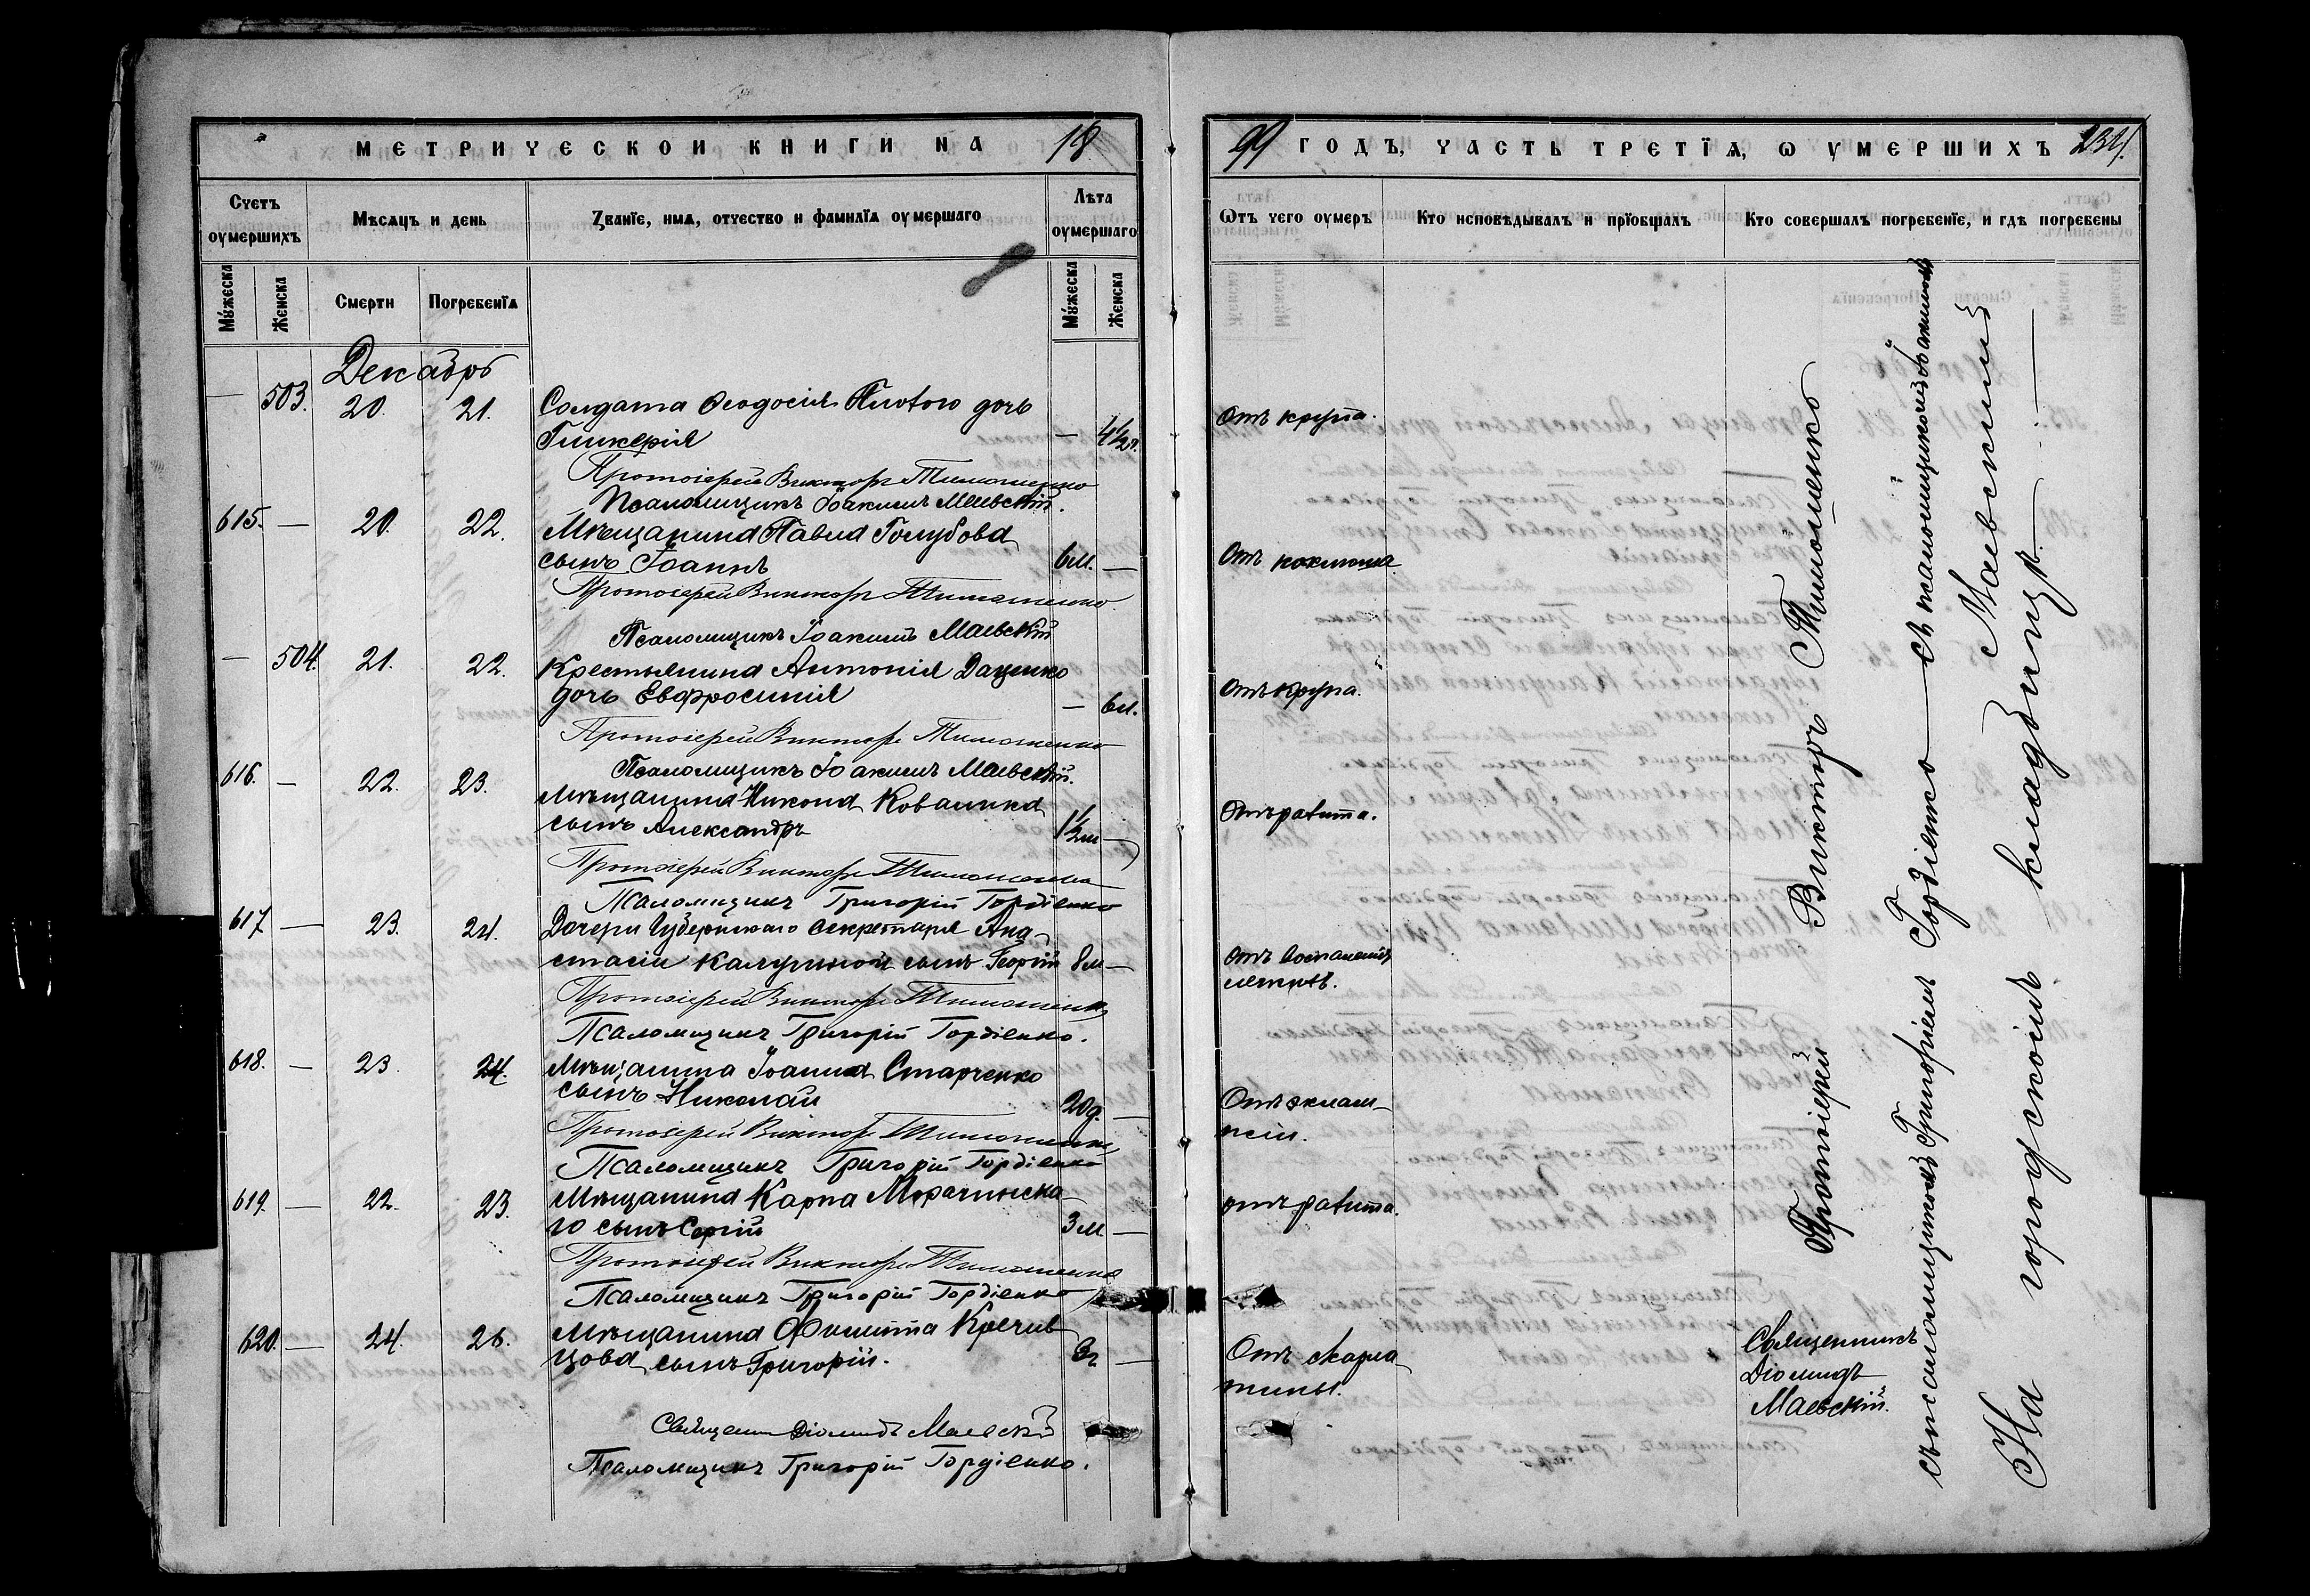 МЕТРИЧЕСКОЙ КНИГИ НА 18
Счетъ оумершихъ
Мѣсяцъ и день
Званїе, имя, отчество и фамилїя оумершаго
Лѣта оумершаго
Мужеска
Женска
Смерти
Погребенїя
Мужеска
Женска
Декабрь
— 503. 20. 21. Солдата Ѳеодосія дочь
Гликерія — 4½ г.
Протоіерей Викторъ Тимошенко
Псаломщикъ Іоакимъ Маевскій.
615. — 20. 22. Мѣщанина Павла Голубова
сынъ Іоаннъ 6 м. —
Протоіерей Викторъ Тимошенко.
Псаломщикъ Іоакимъ Маевскій
— 504. 21. 22. Крестьянина Антонія Даценко
дочь Евфросинія — 6 м.
Протоіерей Викторъ Тимошенко
Псаломщикъ Іоакимъ Маевскій.
616. — 22. 23. Мѣщанина Никона Коваликa
сынъ Александръ 1½ м —
Протоіерей Викторъ Тимошенко
Псаломщикъ Григорій Гордіенко
617 — 23. 24. Дочери Губернскаго Секретаря Ана-
стасіи Калугиной сынъ Георгій 8 м —
Протоіерей Викторъ Тимошенко
Псаломщикъ Григорій Гордіенко.
618. — 23. 24. Мѣщанина Іоанна Старченко
сынъ Николай 20 д. —
Протоіерей Викторъ Тимошенко
Псаломщикъ Григорій Гордіенко
619. — 22. 23. Мѣщанина Карпа Морачинска-
го сынъ Сергій 3 м —
Протоіерей Викторъ Тимошенко
Псаломщикъ Григорій Гордіенко
620. — 24. 26. Мѣщанина Филиппа Кречив
цова сынъ Григорій. 3 г —
Священн Діомидъ Маевскій
Псаломщикъ Григорій Гордіенко.
99 ГОДЪ, ЧАСТЬ ТРЕТЇЯ, Ѡ ОУМЕРШИХЪ 234.
Ѿтъ чего оумеръ
Кто исповѣдывалъ и прїобщалъ
Кто совершалъ погребенїе, и гдѣ погребены
Отъ крупа.
Отъ коклюша
Отъ крупа.
Отъ рахита.
Отъ воспаленія
легкихъ.
Отъ эклам-
псіи.
отъ рахита.
Отъ скарла
тины.
Протоіерей Викторъ Тимошенко
съ псаломщикомъ Григоріемъ Гордіенко — съ псаломщикомъ Іоакимомъ
Маевскимъ
На городскомъ кладбищѣ. —
Священникъ
Діомидъ
Маевскій.